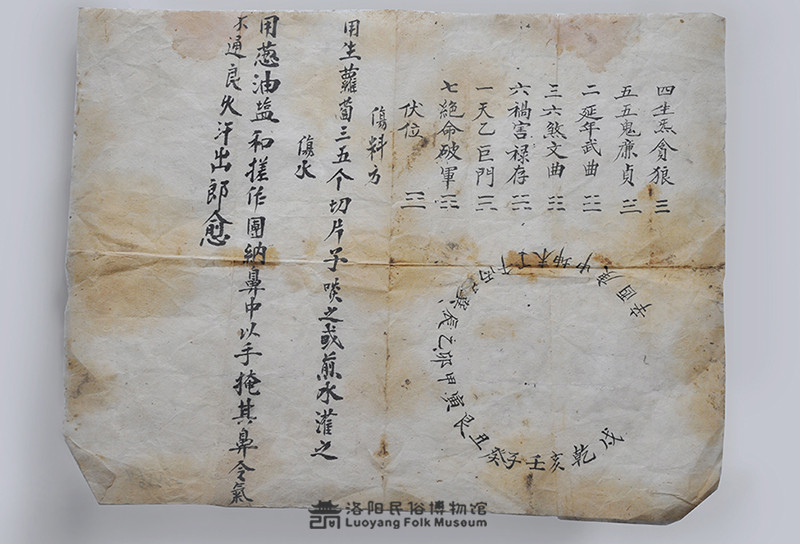 四生炁貪狼
五五鬼廉貞
二延年武曲
三六煞文曲
六禍害禄存
一天乙巨門
七絕命破軍
伏位
戌乾亥壬子癸丑艮寅甲卯乙辰巽巳丙午丁未坤申庚酉辛
傷料方
用生蘿蔔三五个切片子啖之或煎水灌之
傷水
用葱油塩和搓作團納鼻中以手掩其鼻令氣
不通良久汗出郎愈
洛阳民俗博物馆
Luoyang Folk Museum